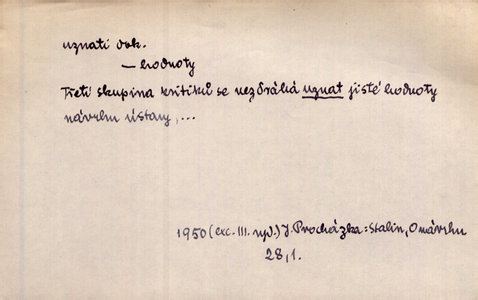 uznati dok.
— hodnoty
Třetí skupina kritiků se nezdráhá uznat jisté hodnoty
návrhu ústavy, ...
1950 (exc. III. vyd.) J. Procházka: Stalin, O návrhu
28,1.